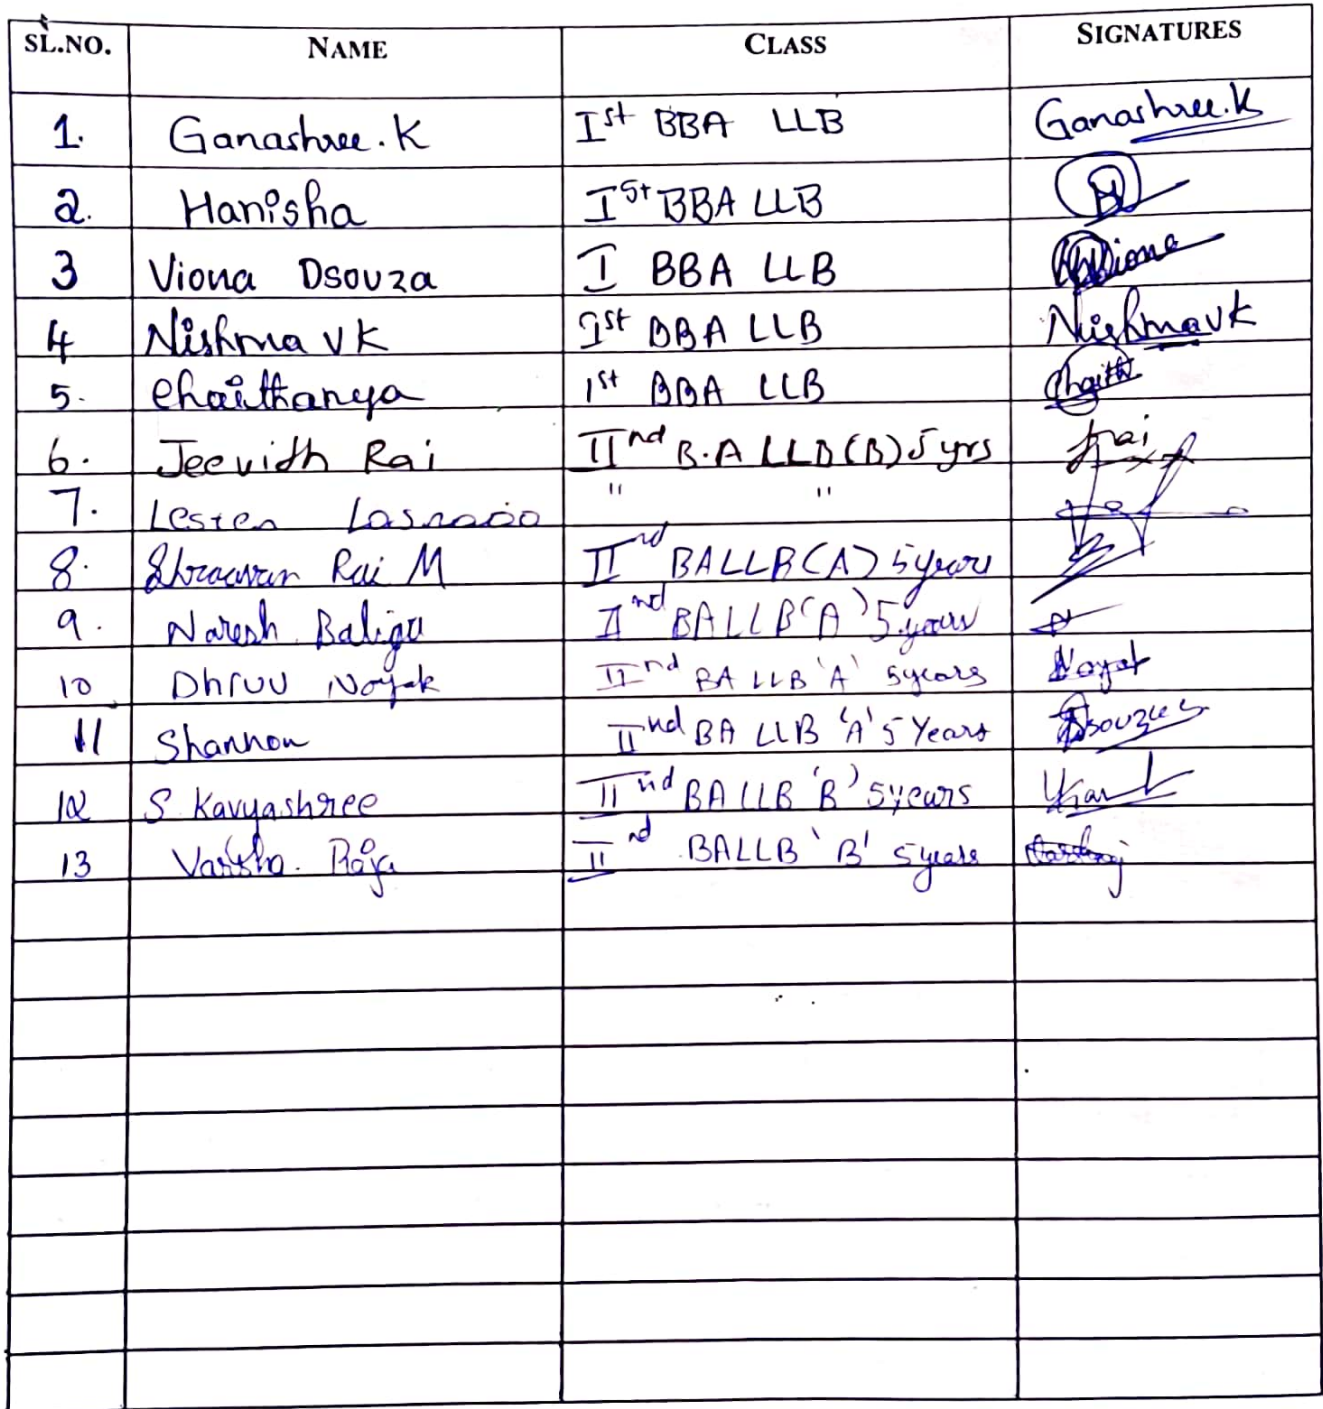 SL.NO. NAME CLASS SIGNATURES
1. Ganashree.K Ist BBA LLB Ganashree.K
2. Hanisha Ist BBA LLB H
3 Viona Dsouza I BBA LLB Viona
4 Nishma VK Ist BBA LLB Nishma VK
5. Chaithanya 1st BBA LLB Chaith
6. Jeevith Rai IInd B.A LLB(B) 5 yrs Jrai
7. Lester Lasrado " "
8. Shraavan Rai M IInd BALLB(A) 5 years
9. Naresh Baliga IInd BALLB(A) 5 years
10 Dhruv Nayak IInd BA LLB 'A' 5years Nayak
11 Shannon IInd BA LLB 'A' 5 Years Dsouza
12 S Kavyashree IInd BA LLB 'B' 5years
13 Varsha. Raja IInd BALLB 'B' 5years